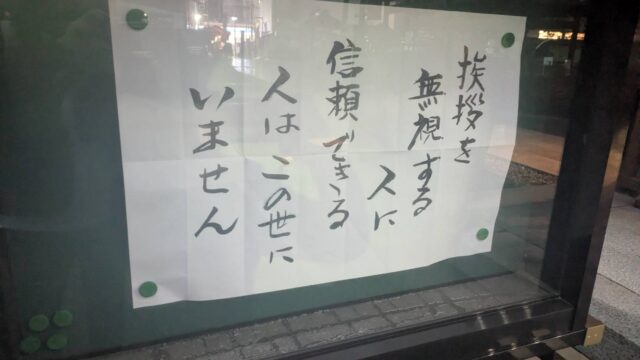 挨拶を
無視する
人に
信頼できる
人はこの世に
いません